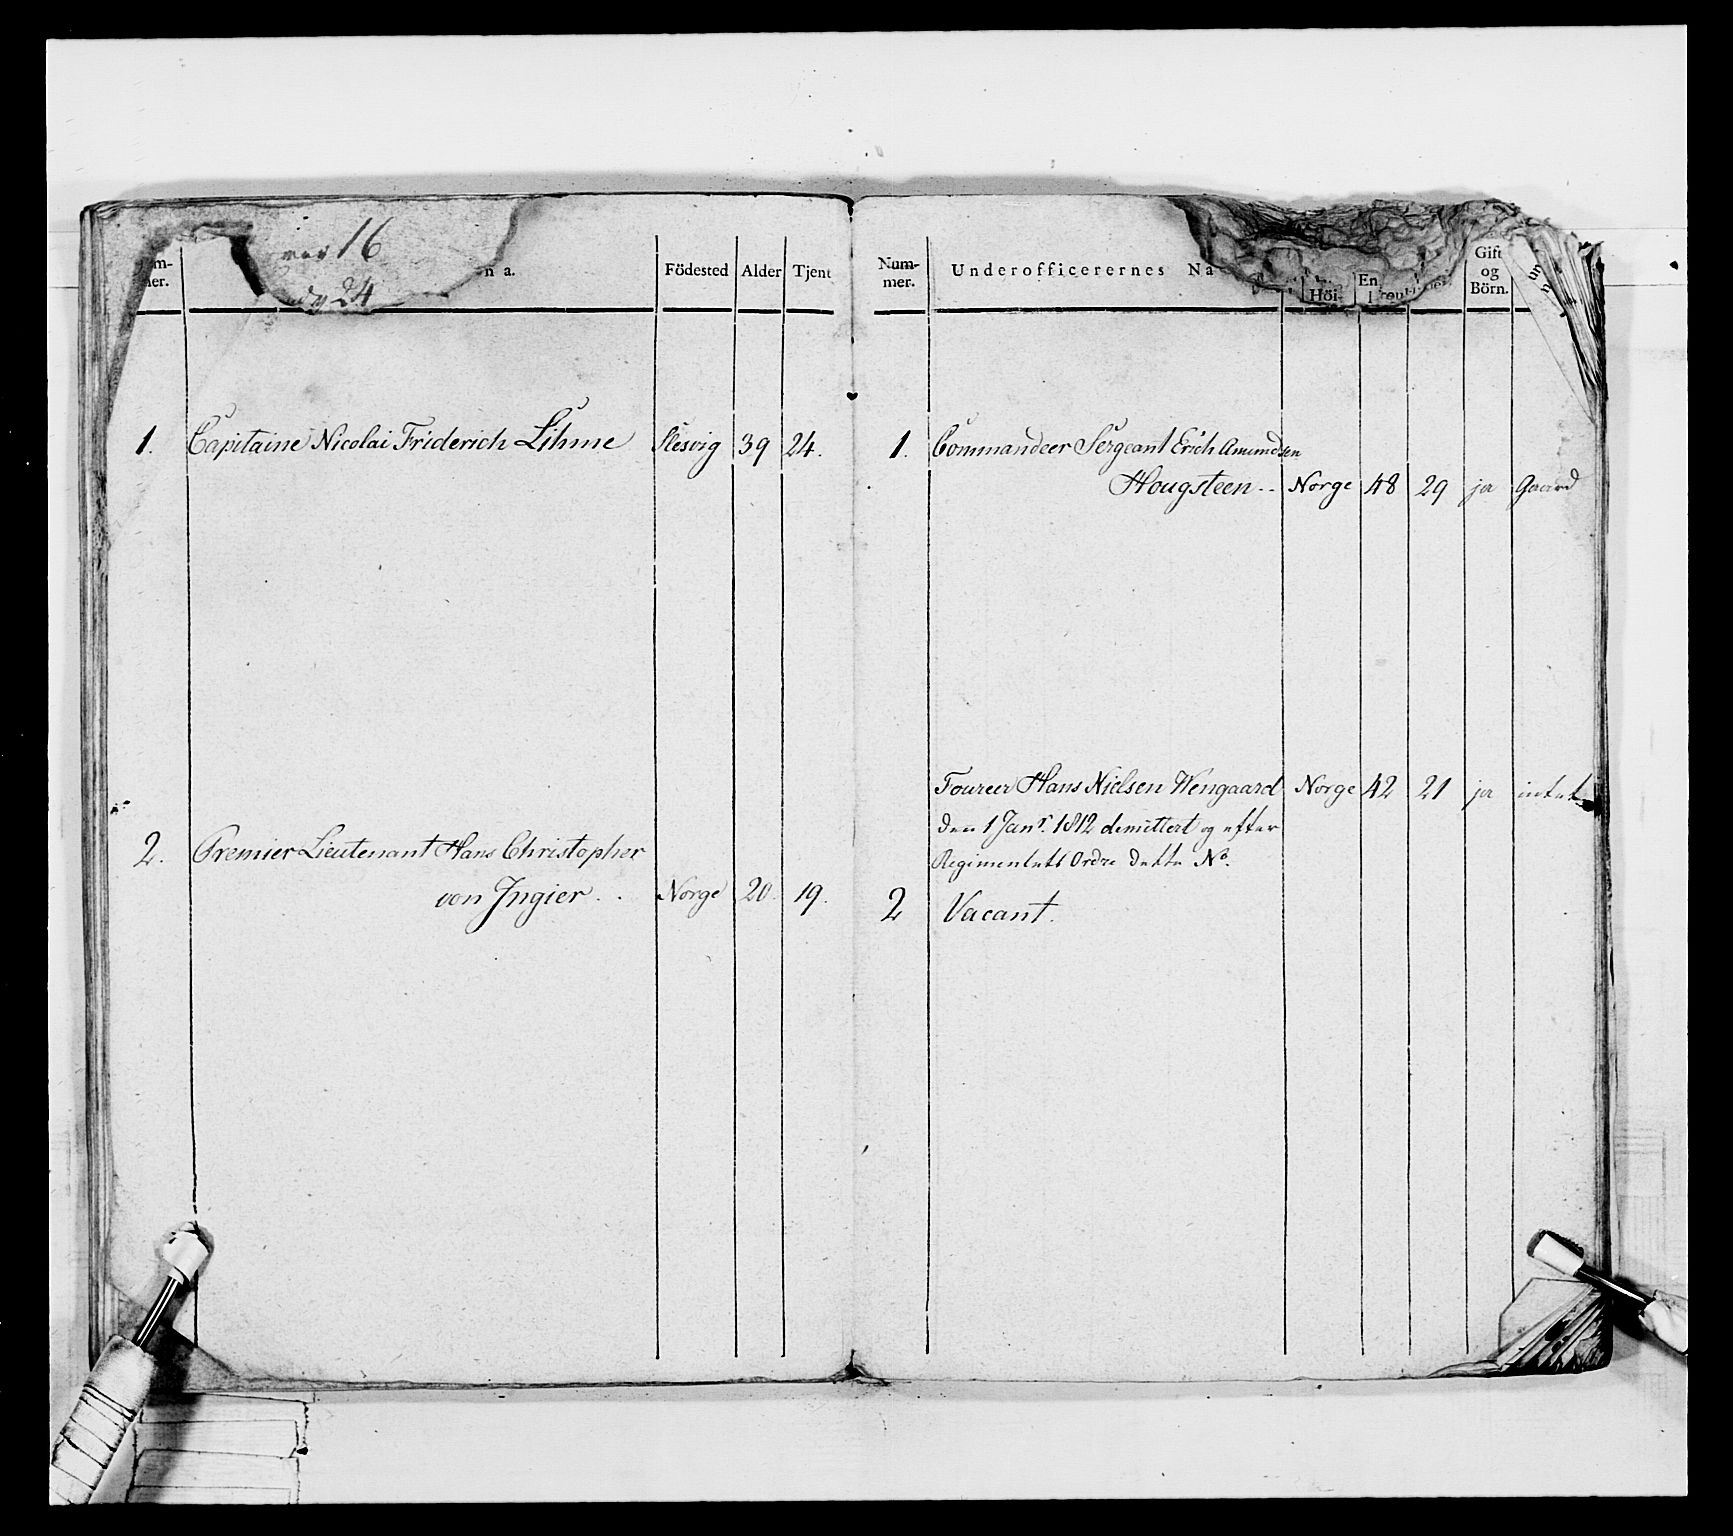 16
24
n a. Födested Alder Tjent
1. Capitaine Nicolai Friderich Lihme Slesvig 39 24.
2. Premier Lieutenant Hans Christopher
von Ingier . . Norge 20. 19.
Num-
mer.
Underofficerernes Na
Höi-
En
Gift
og
Börn.
1. Commandeer Sergeant Erich Amundsen
Hougsteen -- Norge 48 29 ja Gaard
Foureer Hans Nielsen Wengaard Norge 42 21 ja intet
den 1 Janr. 1812 demittert og efter
Regimentets Ordre dette No.
2 Vacant.